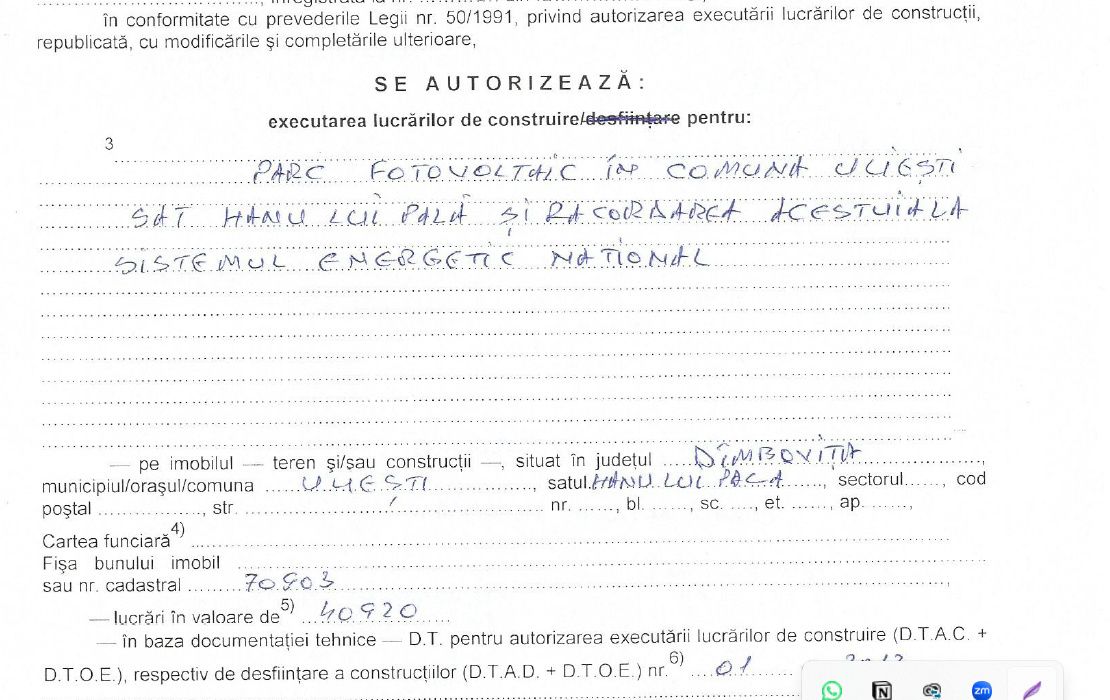 în conformitate cu prevederile Legii nr. 50/1991, privind autorizarea executării lucrărilor de construcţii,
republicată, cu modificările şi completările ulterioare,
SE AUTORIZEAZĂ:
executarea lucrărilor de construire/desfiinţare pentru:
3
PARC FOTOVOLTAIC ÎN COMUNA ULIEŞTI
SAT HANU LUI PALĂ ŞI RACORDAREA ACESTUIA LA
SISTEMUL ENERGETIC NATIONAL
— pe imobilul — teren şi/sau construcţii —, situat în judeţul ..... DÎMBOVIŢA .....,
municipiul/oraşul/comuna ..... ULIEŞTI ....., satul HANU LUI PALA ....., sectorul......, cod
poştal .................., str. .................. nr. ......, bl. ......, sc. ...., et. ......, ap. ......,
Cartea funciară 4) ..................
Fişa bunului imobil ..................
sau nr. cadastral ......... 70903 ..................,
— lucrări în valoare de 5) ... 40920 ......
— în baza documentaţiei tehnice — D.T. pentru autorizarea executării lucrărilor de construire (D.T.A.C. +
D.T.O.E.), respectiv de desfiinţare a construcţiilor (D.T.A.D. + D.T.O.E.) nr. 6) .... 01 ......
zm